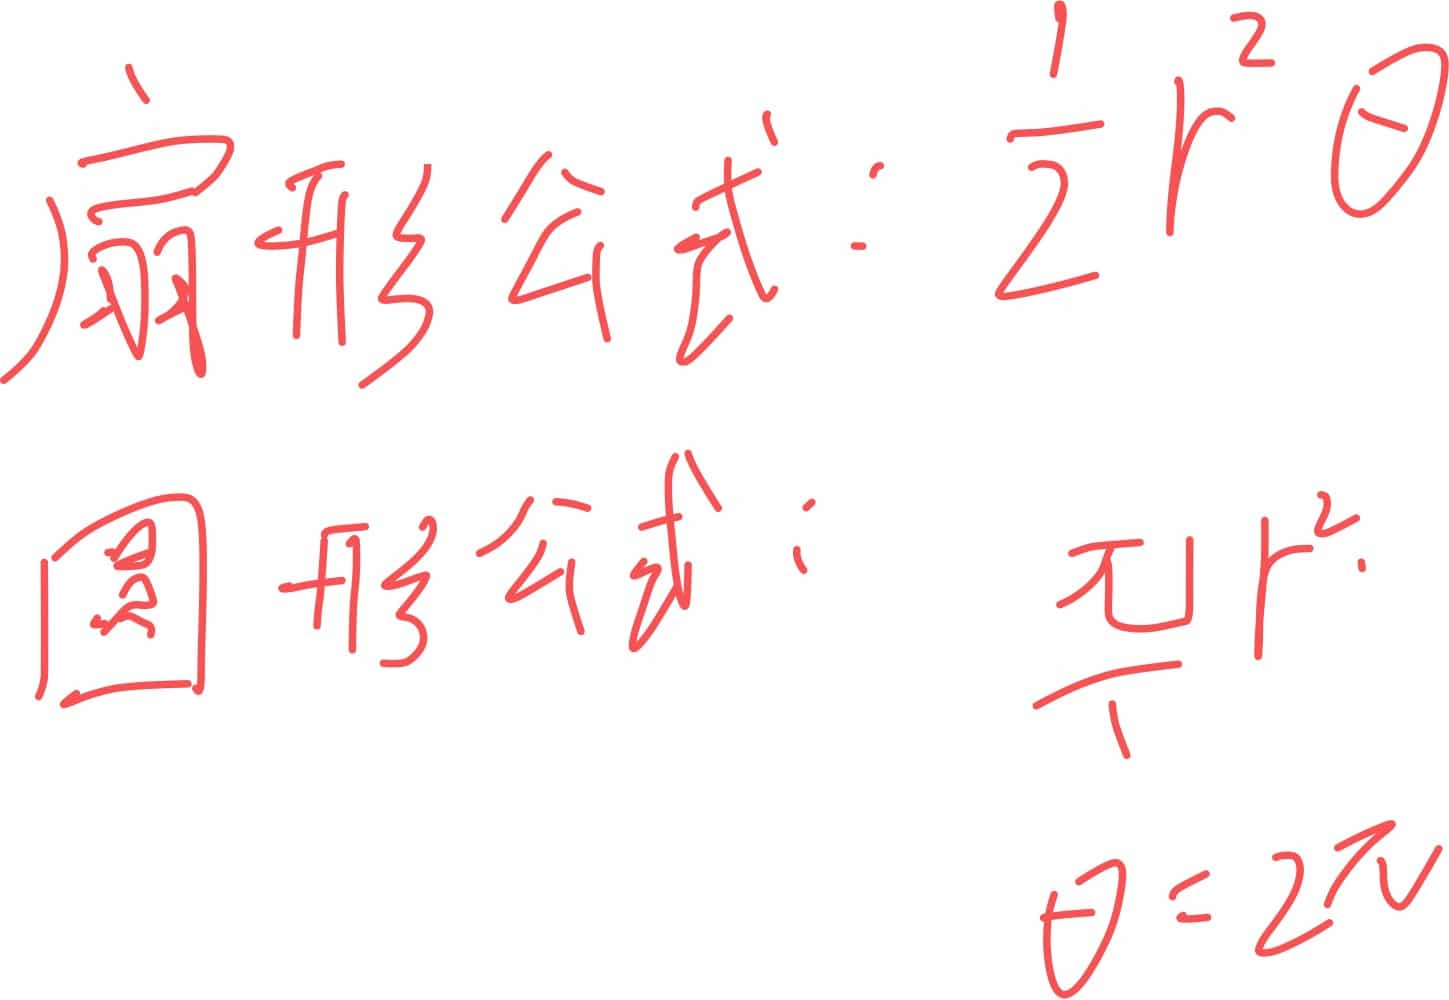 扇形公式: 1/2 r² θ
圆形公式: π/1 r².
θ = 2π